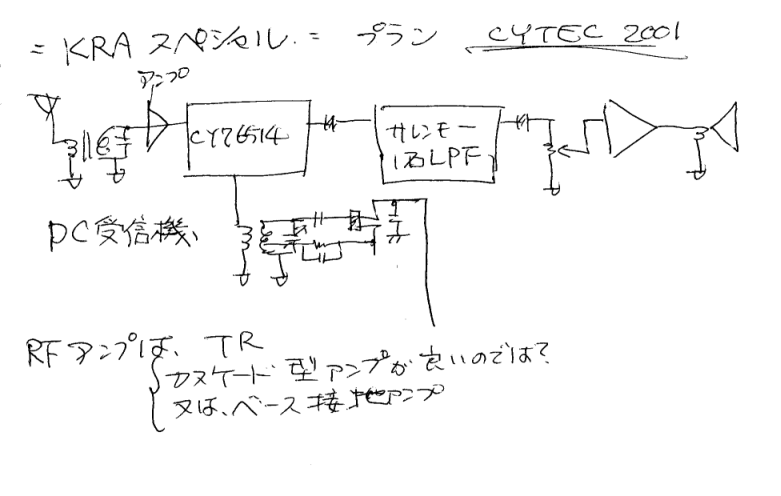 = KRA スペシャル. = プラン CYTEC 2001
アンプ
CY76514
サレンキー
1石LPF
DC受信機、
RFアンプは、TR
カスケード型アンプが良いのでは?
又は、ベース接地アンプ